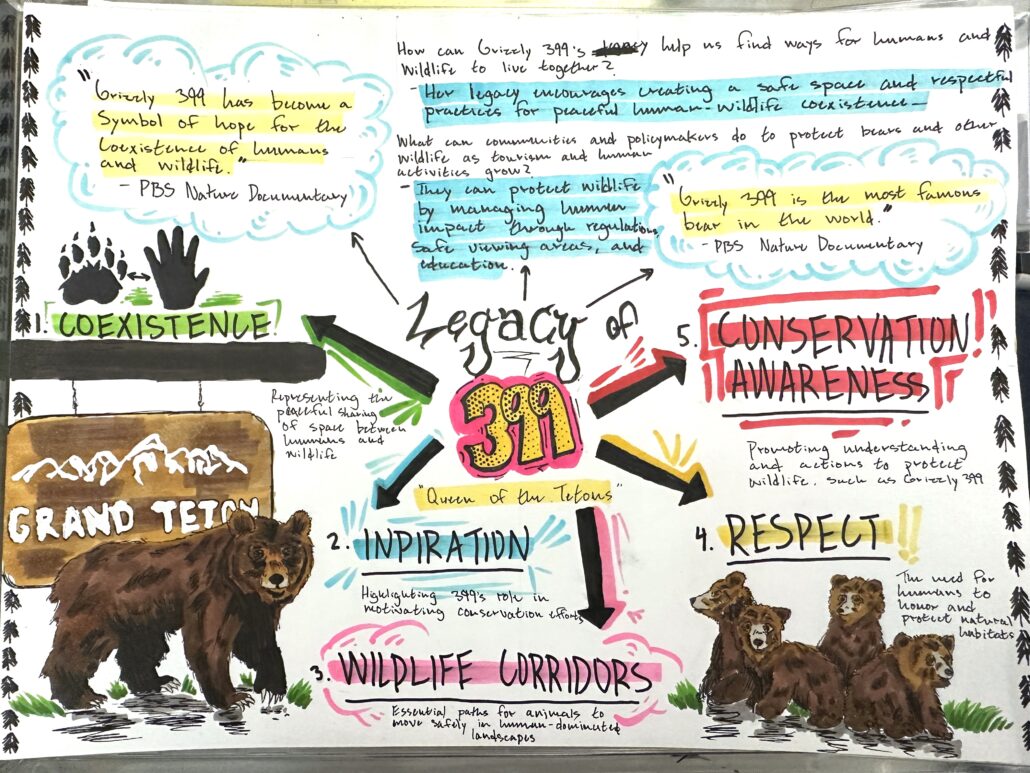 "Grizzly 399 has become a
Symbol of hope for the
Coexistence of humans
and wildlife."
- PBS Nature Documentary
How can Grizzly 399's help us find ways for humans and
Wildlife to live together?
- Her legacy encourages creating a safe space and respectful
practices for peaceful human-wildlife coexistence-
What can communities and policymakers do to protect bears and other
wildlife as tourism and human
activities grow?
- They can protect wildlife
by managing human
impact through regulations,
safe viewing areas, and
education.
"Grizzly 399 is the most famous
bear in the world."
- PBS Nature Documentary
Legacy of
399
"Queen of the Tetons"
1. COEXISTENCE
Representing the
peaceful sharing
of space between
humans and
wildlife
GRAND TETON
2. INPIRATION
Highlighting 399's role in
motivating conservation efforts
3. WILDLIFE CORRIDORS
Essential paths for animals to
move safely in human-dominated
landscapes
4. RESPECT
The need for
humans to
honor and
protect natural
habitats
5. CONSERVATION
AWARENESS
Promoting understanding
and actions to protect
wildlife, such as Grizzly 399